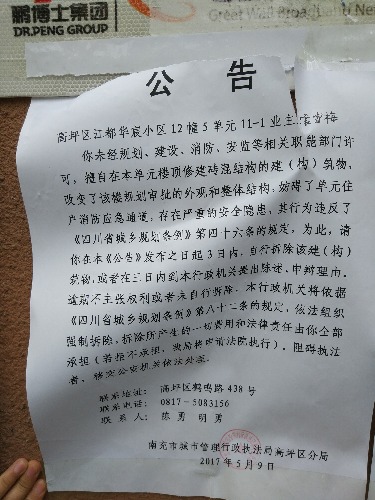 鹏博士集团
DR.PENG GROUP
Great Wall Broadband Ne
公告
高坪区江都华宸小区12幢5单元11-1业主
你未经规划、建设、消防、安监等相关职能部门许
可，擅自在本单元楼顶修建砖混结构的建（构）筑物，
改变了该楼规划审批的外观和整体结构，妨碍了单元住
户消防应急通道，存在严重的安全隐患，其行为违反了
《四川省城乡规划条例》第四十六条的规定，为此，请
你在本《公告》发布之日起3日内，自行拆除该建（构）
筑物，或者在三日内到本行政机关提出陈述、申辩理由。
逾期不主张权利或者未自行拆除，本行政机关将依据
《四川省城乡规划条例》第八十二条的规定，依法组织
强制拆除，拆除所产生的一切费用和法律责任由你全部
承担（若拒不承担，我局将申请法院执行）。阻碍执法
者，移交公安机关依法处理。
联系地址：高坪区鹤鸣路438号
联系电话：0817-5083156
联系人：陈勇 明勇
南充市城市管理行政执法局高坪区分局
2017年5月9日